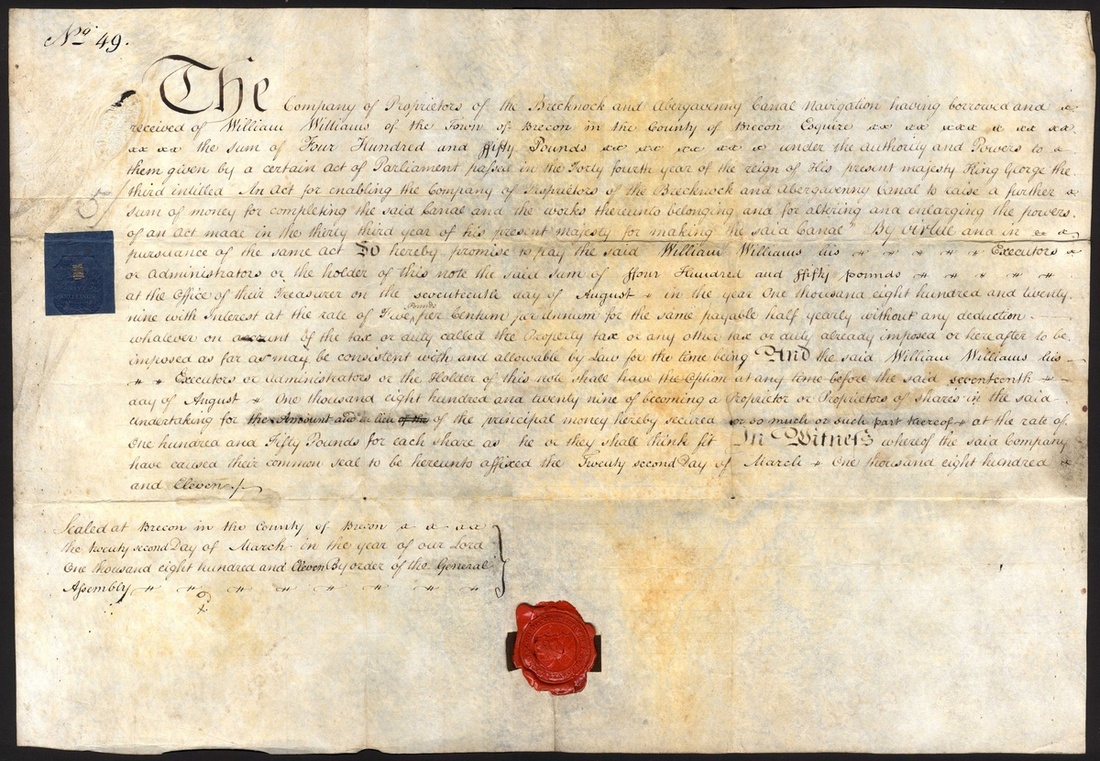 No. 49.
The Company of Proprietors of the Brecknock and Abergavenny Canal Navigation having borrowed and
received of William Williams of the Town of Brecon in the County of Brecon Esquire
the sum of Four Hundred and ffifty Pounds under the authority and Powers to
them given by a certain Act of Parliament passed in the Forty fourth year of the reign of His present majesty King George the
third intitled An Act for enabling the Company of Proprietors of the Brecknock and Abergavenny Canal to raise a further
sum of money for completing the said Canal and the works thereunto belonging and for altering and enlarging the powers
of an Act made in the thirty third year of his present majesty for making the said Canal" By virtue and in
pursuance of the same act DO hereby promise to pay the said William Williams his Executors
or administrators or the holder of this note the said sum of ffour Hundred and ffifty pounds
at the Office of their Treasurer on the seventeenth day of August in the year One thousand eight hundred and twenty
nine with Interest at the rate of Five Pounds per Centum per Annum for the same payable half yearly without any deduction
whatever on account of the tax or duty called the Property tax or any other tax or duty already imposed or hereafter to be
imposed as far as may be consistent with and allowable by Law for the time being And the said William Williams his
Executors or administrators or the Holder of this note shall have the Option at any time before the said seventeenth
day of August One thousand eight hundred and twenty nine of becoming a Proprietor or Proprietors of shares in the said
undertaking for the Amount and in lieu of the of the principal money hereby secured or so much or such part thereof at the rate of
One hundred and Fifty Pounds for each share as he or they shall think fit In Witness whereof the said Company
have caused their common seal to be hereunto affixed the Twenty second Day of March One thousand eight hundred
and Eleven
Sealed at Brecon in the County of Brecon
the twenty second Day of March in the year of our Lord
One thousand eight hundred and Eleven By order of the General
Assembly